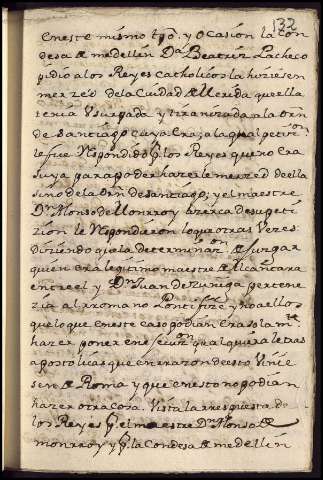 132
en este mismo tpo. y ocasión la con
desa de medellin Da Beatriz Pacheco
pidió a los Reyes catholicos la hiziesen
merzed de la Ciudad de Merida que ella
tenia Usurpada y tiranizada a la orn
de Santiago cuya era, a la qual peticion
le fue Respondido Pr los Reyes que no era
suya para poder hazerle merzed de ella
sino de la orn de Santiago; y el maestre
Dn Alonso de Monrroy azerca de su peti
zión le Respondieron lo que otras Vezes
diziendo que la determinazon de Juzgar
quien era legitimo maestre de Alcantara
entre el y Dn Juan de Zuniga pertene
zia al rromano Pontifize y no a ellos
que lo que en este caso podian era solamte
hazer poner en execuon qualquiera letras
apostolicas que en rrazon de esto Vinie
sen de Roma y que en esto no podian
hazer otra cosa. Vista la rrespuesta de
los Reyes Pr el maestre Dn Alonso de
monrroy y Pr la Condesa de medellin